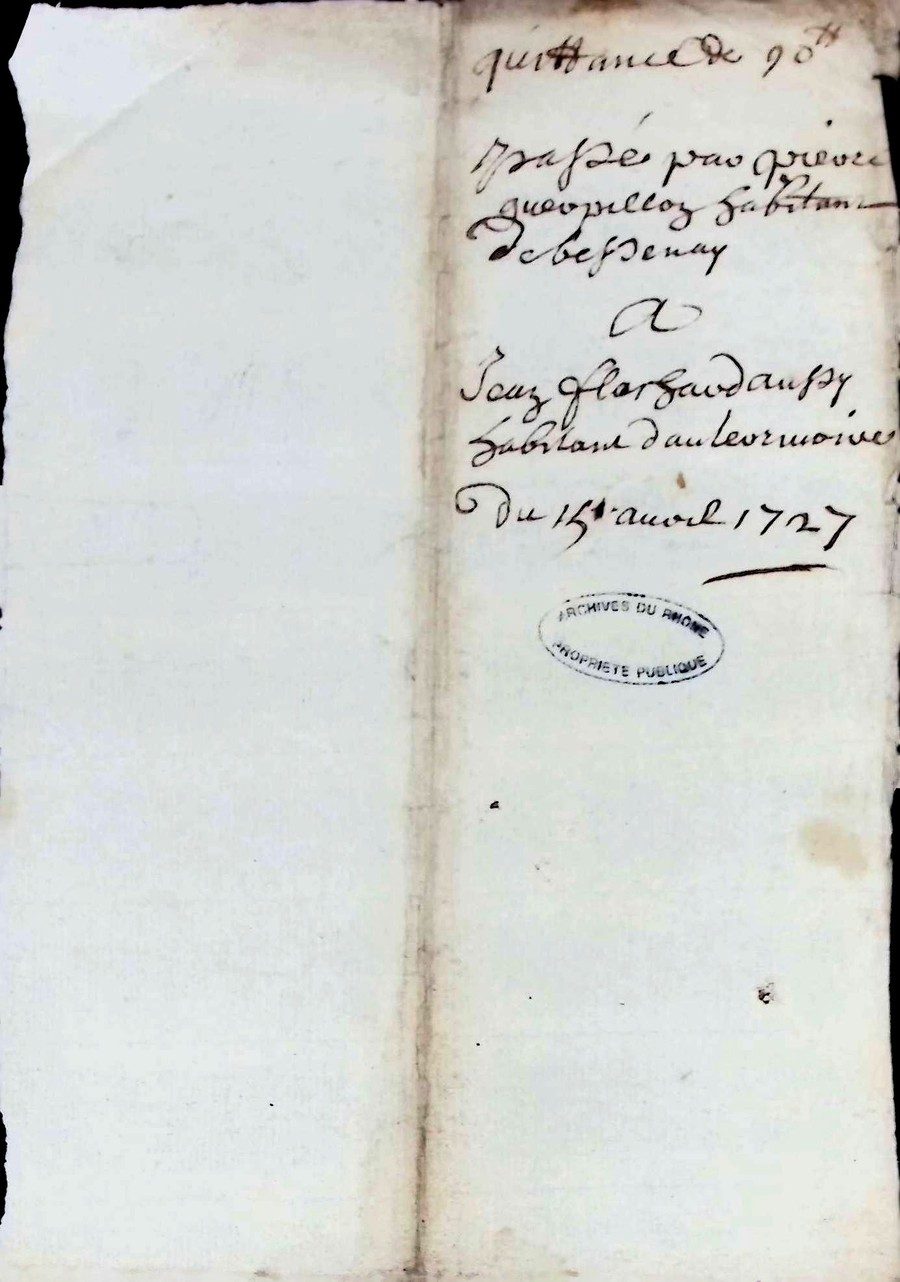 quittance de 90 ₶
passé par pierre
guerpillon habitant
de bessenay
A
Jean flachard aussy
habitant d'auteormoire
Du 15e avril 1727
ARCHIVES DU RHONE
PROPRIETE PUBLIQUE